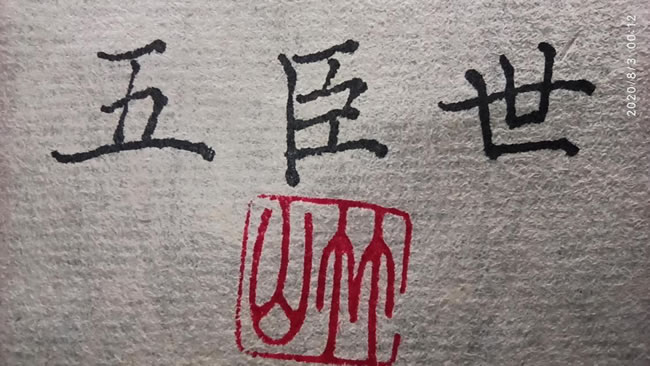 五臣世
2020/8/3 00:12